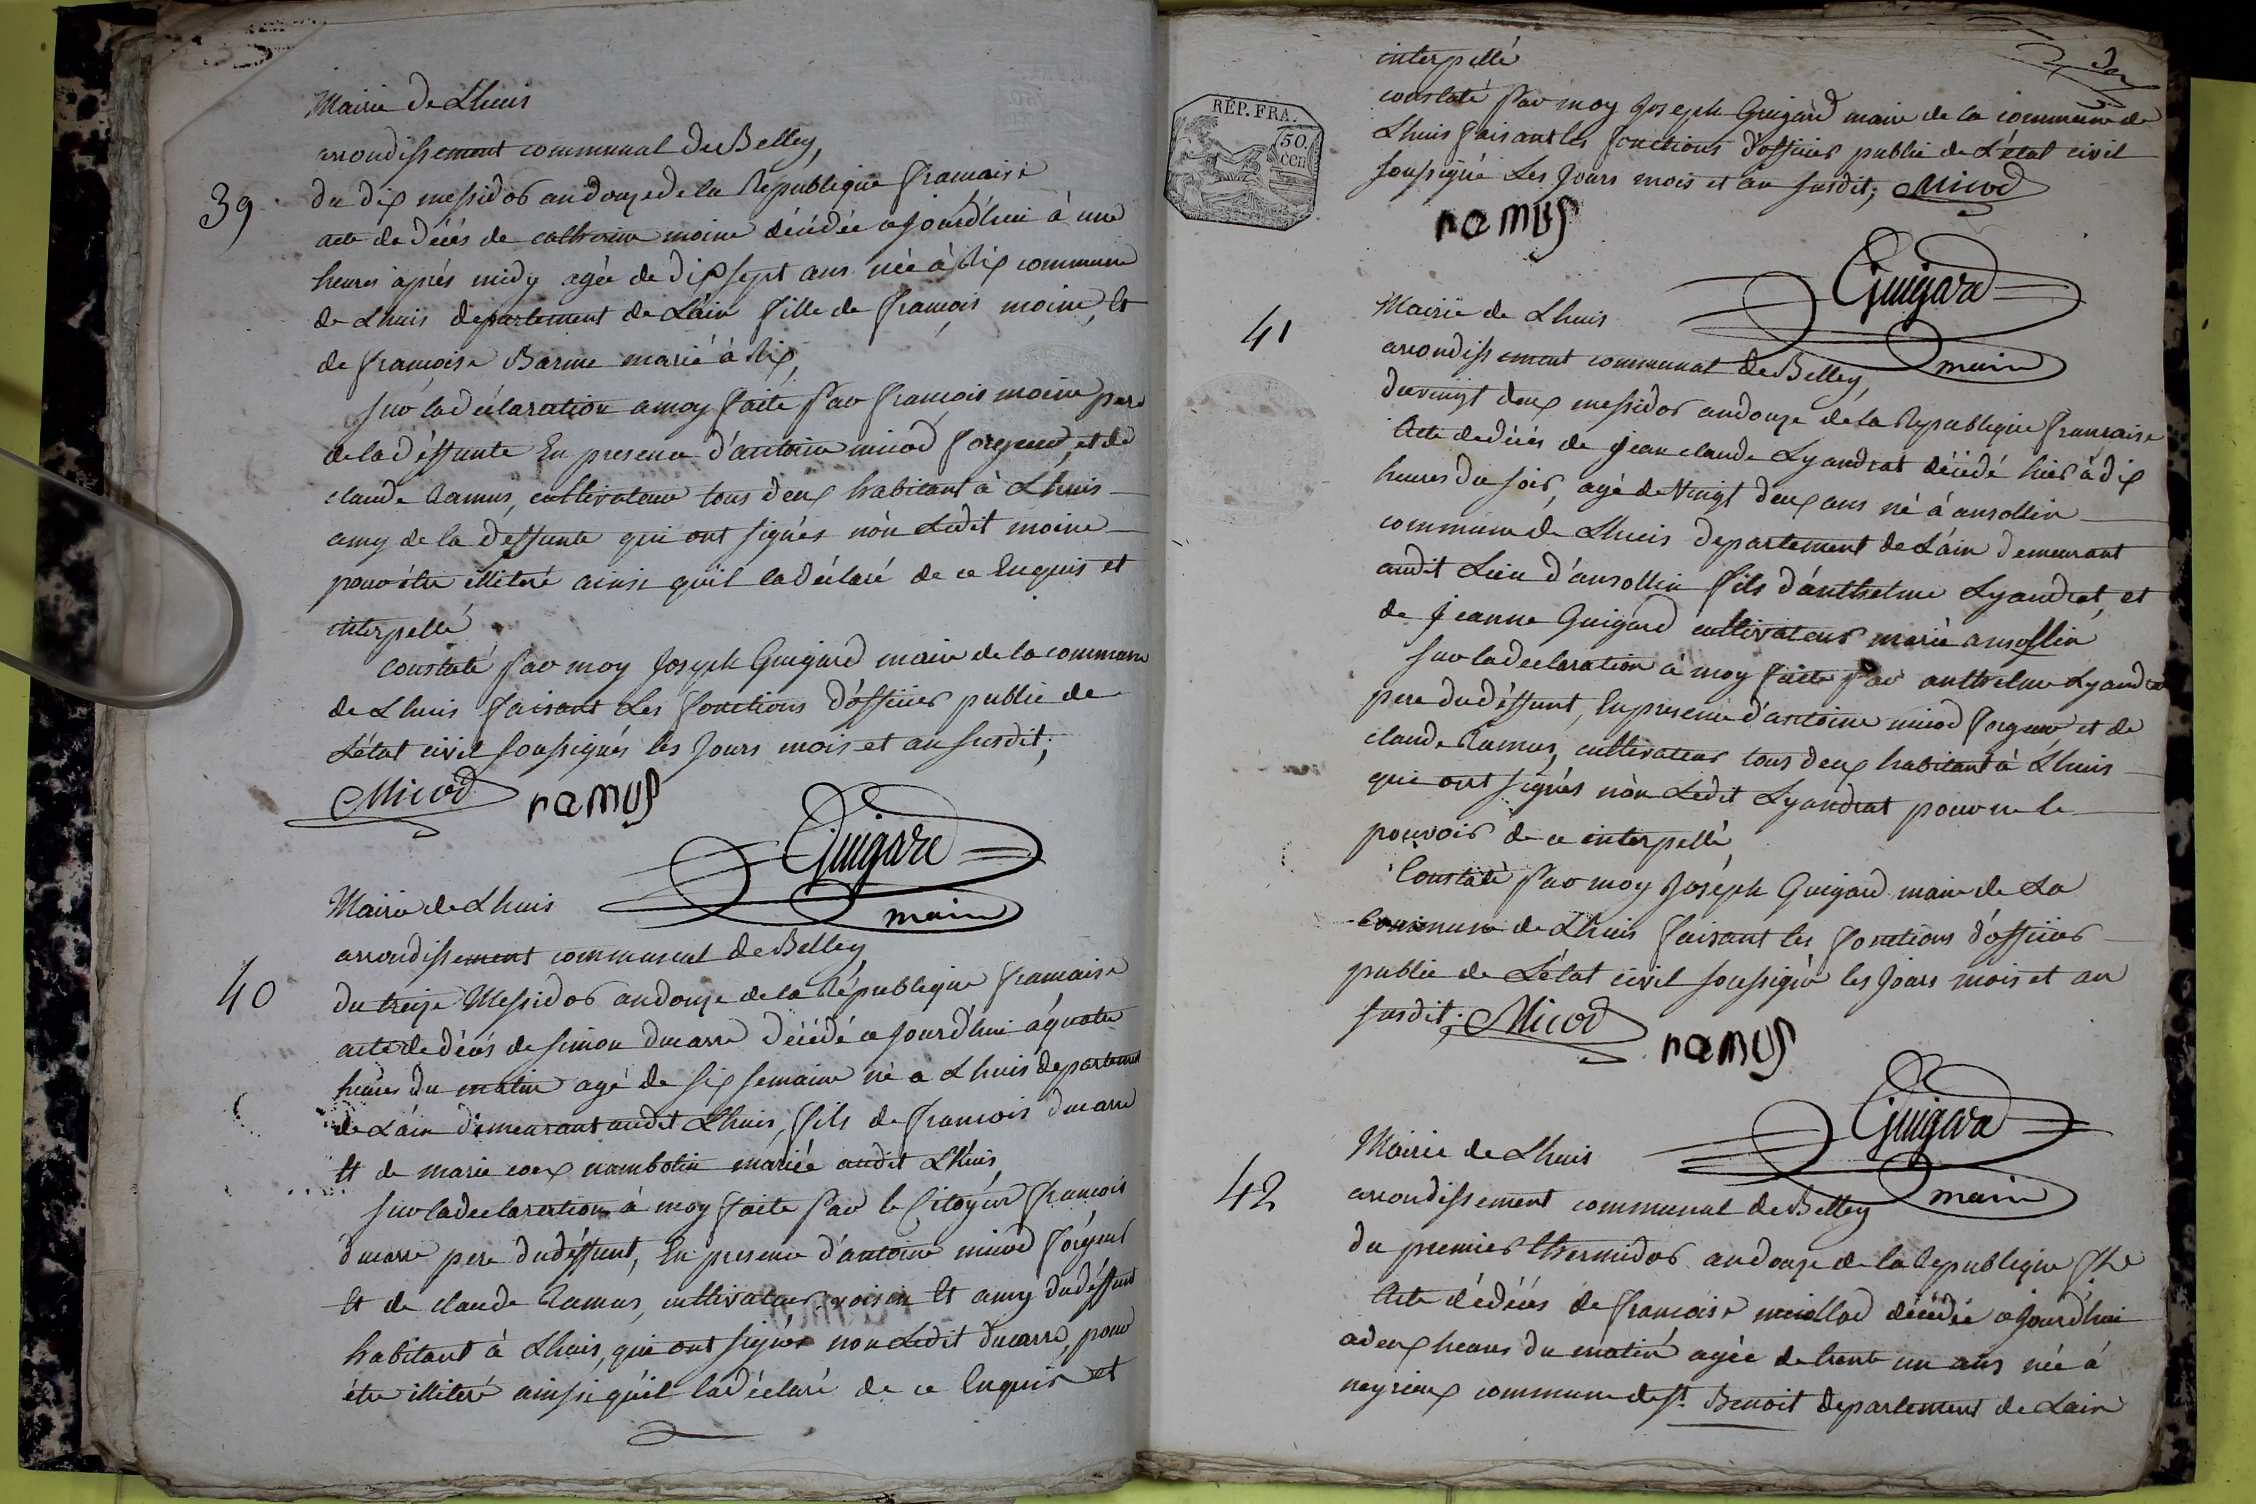 39
Mairie de Lhuis
arrondissement communal de Belley,
du dix messidor an douze de la Republique francaise
acte de décés de catherine moine décédée ajourd'hui à une
heures aprés midy agée de dix sept ans née à Rix commune
de Lhuis departement de Láin fille de françois moine, Et
de francoise Barine marié à Rix,
sur la déclaration a moy faite par francois moine pere
de la déffunte En presence d'antoine micod forgeur, et de
claude Ramus, cultivateur tous deux habitant à Lhuis
amy de la deffunte qui ont signés nòn Ledit moine
pour étre illiteré ainsi quil la déclaré de ce Enquis et
interpellé
Constaté par moy Joseph Guigard maire de la commune
de Lhuis faisant Les fonctions d'officier public de
L'état civil soussignés les Jours mois et an susdit;
Micod ramus
Guigard
maire
40
Mairie de Lhuis
arrondissement communal de Belley
du treize Messidor an douze de la République francaise
acte de décés de simon ducarre décédé ajourd'hui á quatre
heures du matin agé de six semaine né a Lhuis departement
de Láin demeurant audit Lhuis, fils de francois ducarre
Et de marie coux nambotin mariée audit Lhuis,
sur la declaration à moy faite par le Citoyen francois
ducarre pere du déffunt, En presence d'antoine micod forgeur
Et de claude Ramus, cultivateur voisin Et amy du déffunt
habitant à Lhuis, qui ont signés non Ledit ducarre, pour
étre illiteré ainssi quil la déclaré de ce Enquis et
interpellé
constaté par moy Joseph Guigard maire de la commune de
Lhuis faisant les fonctions d'officier public de L'état civil
soussigné Les Jours mois et an susdit; Micod
RÉP. FRA.
50.
cen
ramus
Guigard
maire
41
Mairie de Lhuis
arrondissement communal de Belley,
du vingt deux messidor an douze de la Republique francaise
Acte de décés de jean claude Lyandrat décédé hier à dix
heures du soir, agé de Vingt deux ans né á ansollin
commune de Lhuis departement de Láin demeurant
audit Lieu d'ansollin fils d'anthelme Lyandrat, et
de jeanne Guigard cultivateur marié ansollin
sur la declaration à moy faite par anthelme Lyandrat
pere du déffunt, En presence d'antoine micod forgeur et de
claude Ramus, cultivateur tous deux habitant à Lhuis
qui ont signés nòn Ledit Lyandrat pour ne le
pouvoir de ce interpellé,
Constaté par moy Joséph Guigard maire de La
Commune de Lhuis faisant les fonctions d'officier
public de L'état civil soussigné les Jours mois et an
susdit; Micod ramus
Guigard
maire
42
Mairie de Lhuis
arrondissement communal de Belley
du premier thermidor an douze de la Republique fse
Acte dédécés de francoise miollad décédée ajourd'hui
a deux heures du matin agée de trente un ans née á
neyrieux commune de St. Benoit departement de Lain